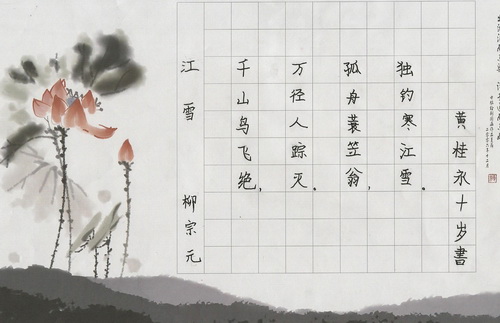 江雪 柳宗元
千山鸟飞绝，
万径人踪灭。
孤舟蓑笠翁，
独钓寒江雪。
黄桂永十岁書